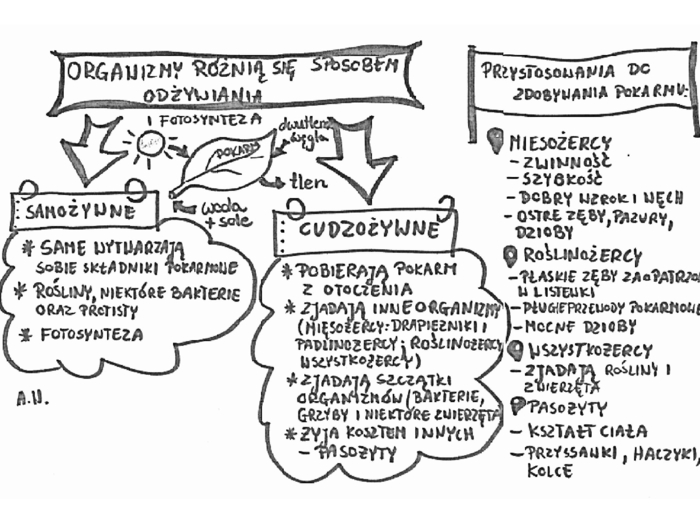 ORGANIZMY RÓŻNIĄ SIĘ SPOSOBEM
ODŻYWIANIA
FOTOSYNTEZA
POKARM
dwutlenek
węgla
tlen
woda
+ sole
SAMOŻYWNE
* SAME WYTWARZAJĄ
SOBIE SKŁADNIKI POKARMOWE
* ROŚLINY, NIEKTÓRE BAKTERIE
ORAZ PROTISTY
* FOTOSYNTEZA
A.W.
CUDZOŻYWNE
* POBIERAJĄ POKARM
Z OTOCZENIA
* ZJADAJĄ INNE ORGANIZMY
(MIĘSOŻERCY: DRAPIEŻNIKI I
PADLINOŻERCY; ROŚLINOŻERCY
WSZYSTKOŻERCY)
* ZJADAJĄ SZCZĄTKI
ORGANIZMÓW (BAKTERIE,
GRZYBY I NIEKTÓRE ZWIERZĘTA
* ŻYJĄ KOSZTEM INNYCH
- PASOŻYTY
PRZYSTOSOWANIA DO
ZDOBYWANIA POKARMU:
MIĘSOŻERCY
- ZWINNOŚĆ
- SZYBKOŚĆ
- DOBRY WZROK I WĘCH
- OSTRE ZĘBY, PAZURY,
DZIOBY
ROŚLINOŻERCY
- PŁASKIE ZĘBY ZAOPATRZON
W LISTEWKI
- DŁUGIE PRZEWODY POKARMOWE
- MOCNE DZIOBY
WSZYSTKOŻERCY
- ZJADAJĄ ROŚLINY I
ZWIERZĘTA
PASOŻYTY
- KSZTAŁT CIAŁA
- PRZYSSAWKI, HACZYKI,
KOLCE